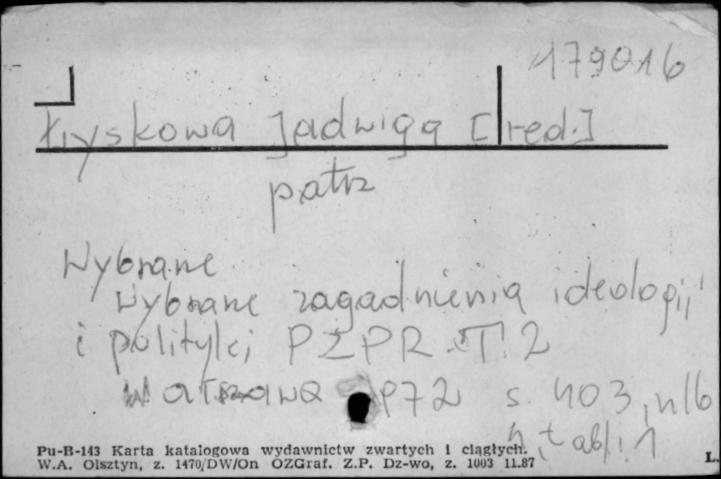 179016
Łyskowa Jadwiga [red.]
patrz
Wybrane
Wybrane zagadnienia ideologii
i polityki PZPR. T. 2
Warszawa 1972 s. 403, nlb
tabl. 1
Pu-B-143 Karta katalogowa wydawnictw zwartych i ciągłych.
W.A. Olsztyn, z. 1470/DW/On OZGraf. Z.P. Dz-wo, z. 1003 11.87
L.